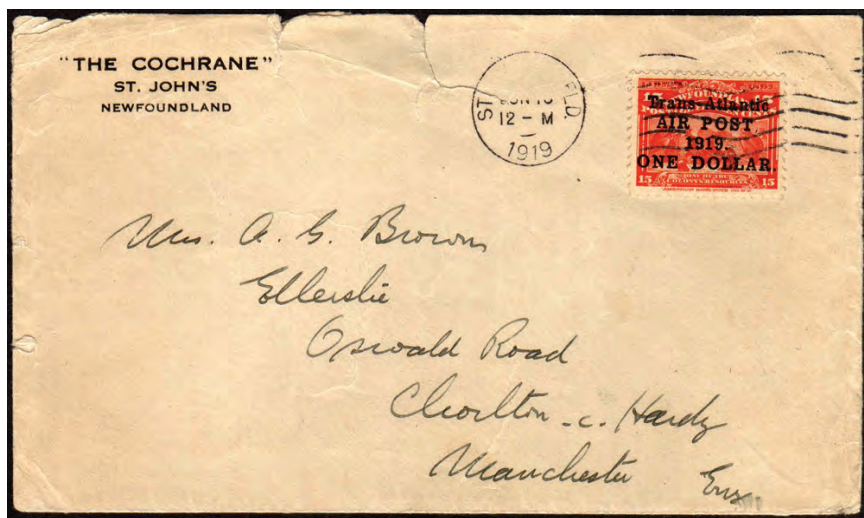 "THE COCHRANE"
ST. JOHN'S
NEWFOUNDLAND
ST
FLD
12 - M
1919
Trans-Atlantic
AIR POST,
1919.
ONE DOLLAR.
15 15
Mrs. A. G. Brown
Ellerslie
Oswald Road
Chorlton-c. Hardy
Manchester Eng